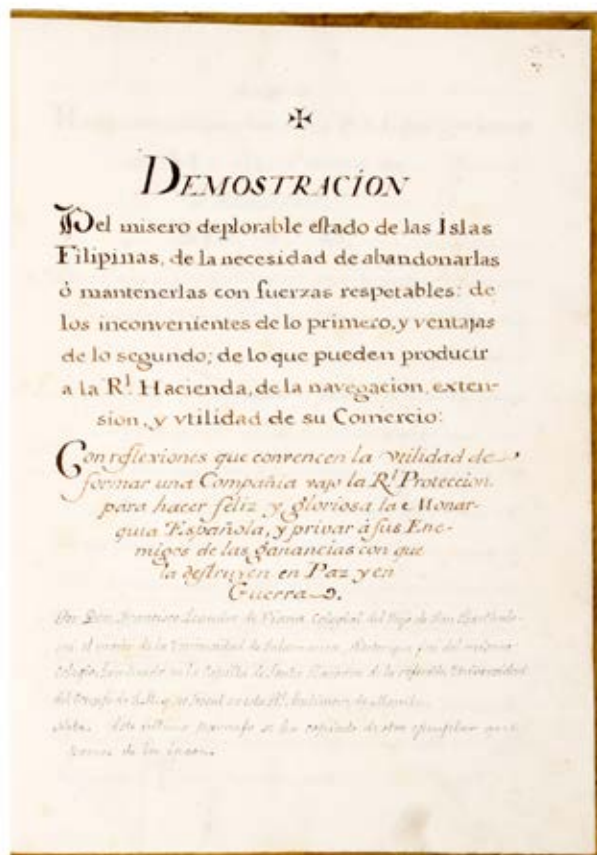 ✠
DEMOSTRACION
Del misero deplorable estado de las Islas
Filipinas, de la necesidad de abandonarlas
ó mantenerlas con fuerzas respetables: de
los inconvenientes de lo primero, y ventajas
de lo segundo; de lo que pueden producir
a la Rl. Hacienda, de la navegacion, exten-
sion, y vtilidad de su Comercio:
Con reflexiones que convencen la vtilidad de
formar una Compañia vajo la Rl. Proteccion
para hacer feliz y gloriosa la Monar-
quia Española, y privar à sus Ene-
migos de las ganancias con que
la destruyen en Paz y en
Guerra.
Por Don Francisco Leandro de Viana, Colegial del de San Bartholo-
me el mayor de la Universidad de Salamanca, que fue del mismo
Colegio, en la Capilla de Santa de la referida Universidad
del Consejo de S.M. y su Fiscal en esta Rl. Audiencia de Manila.
Nota. Este ultimo parrafo se ha copiado de otro ejemplar
de la epoca.